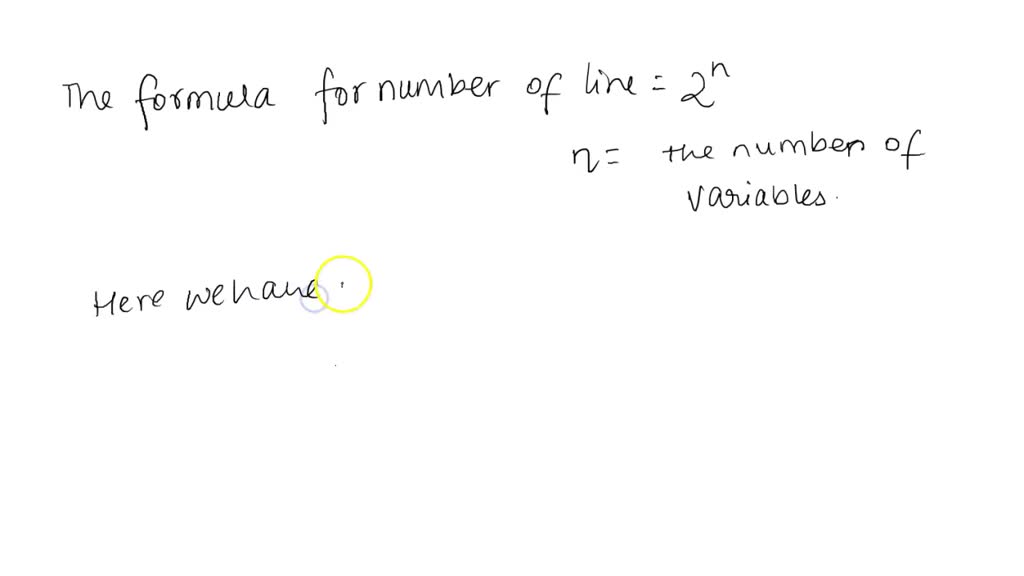 The formula for number of line = 2ⁿ
n = the number of
variables.
Here we have